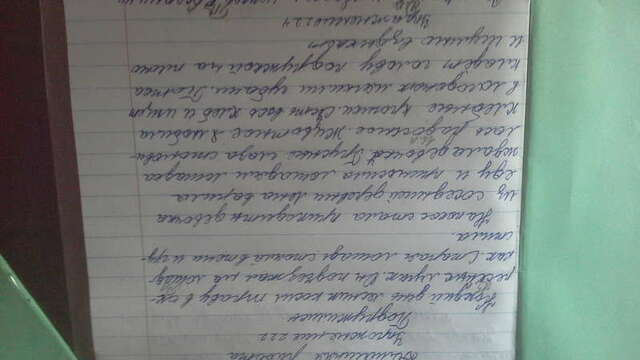 Домашняя работа
Упрожнение 222
Подружились
Каждый день лесник косил траву в ок-
ресных лугах. Он подъезжал на лошад-
ках. Старая лошадь стояла в тени и гру-
стила.
На покос стала приходить девочка
из соседнией деревни Лена варила
еду и приносила лошадям лошадка
ждала девочка. Грусные глаза станови-
лось радосное. Животное любила
хлебные крошки. весь хлеб и ищет
в лагодонах мягкими губами. Потом
кладёт голову подружкой на плечо
и шумно вздыхает
Упражнение 224